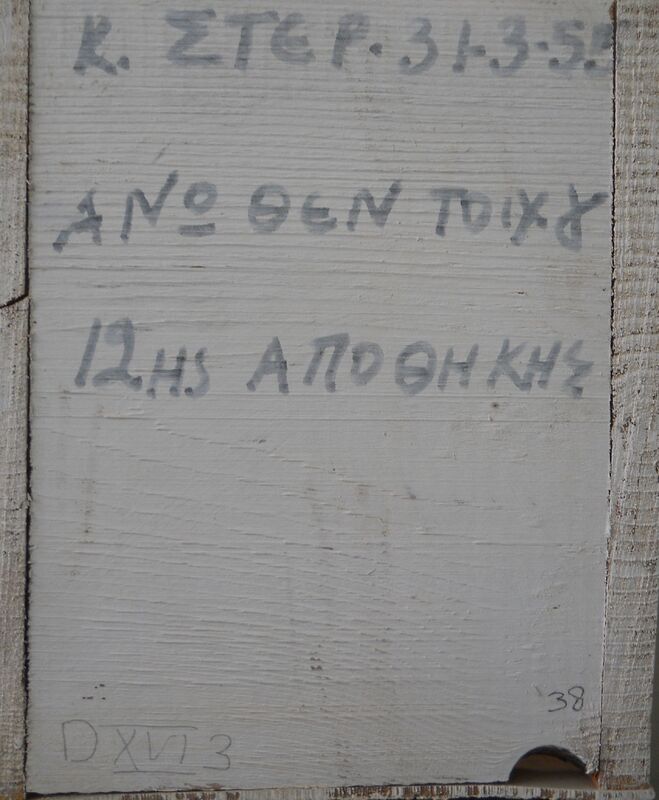 Κ. ΣΤΕΡ. 31-3-55
ΑΝΩΘΕΝ ΤΟΙΧȢ
12ΗΣ ΑΠΟΘΗΚΗΣ
38
D XVI 3